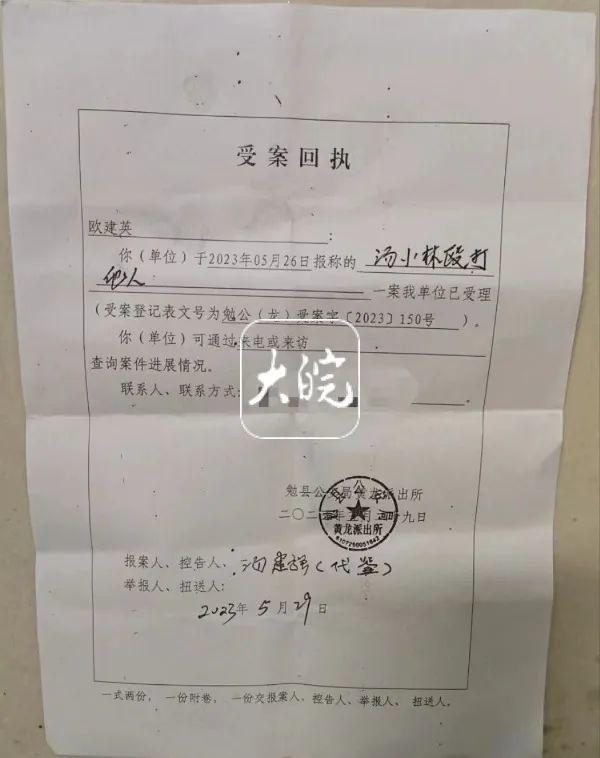 受案回执
欧建英:
你（单位）于2023年05月26日报称的 汤小林殴打
他人 一案我单位已受理
（受案登记表文号为勉公（龙）受案字〔2023〕150号）。
你（单位）可通过来电或来访
查询案件进展情况。
联系人、联系方式:
大皖
勉县公安局黄龙派出所
二〇二三年五月二十九日
黄龙派出所
报案人、控告人、汤建强（代签）
举报人、扭送人:
2023年5月29日
一式两份，一份附卷，一份交报案人、控告人、举报人、扭送人。